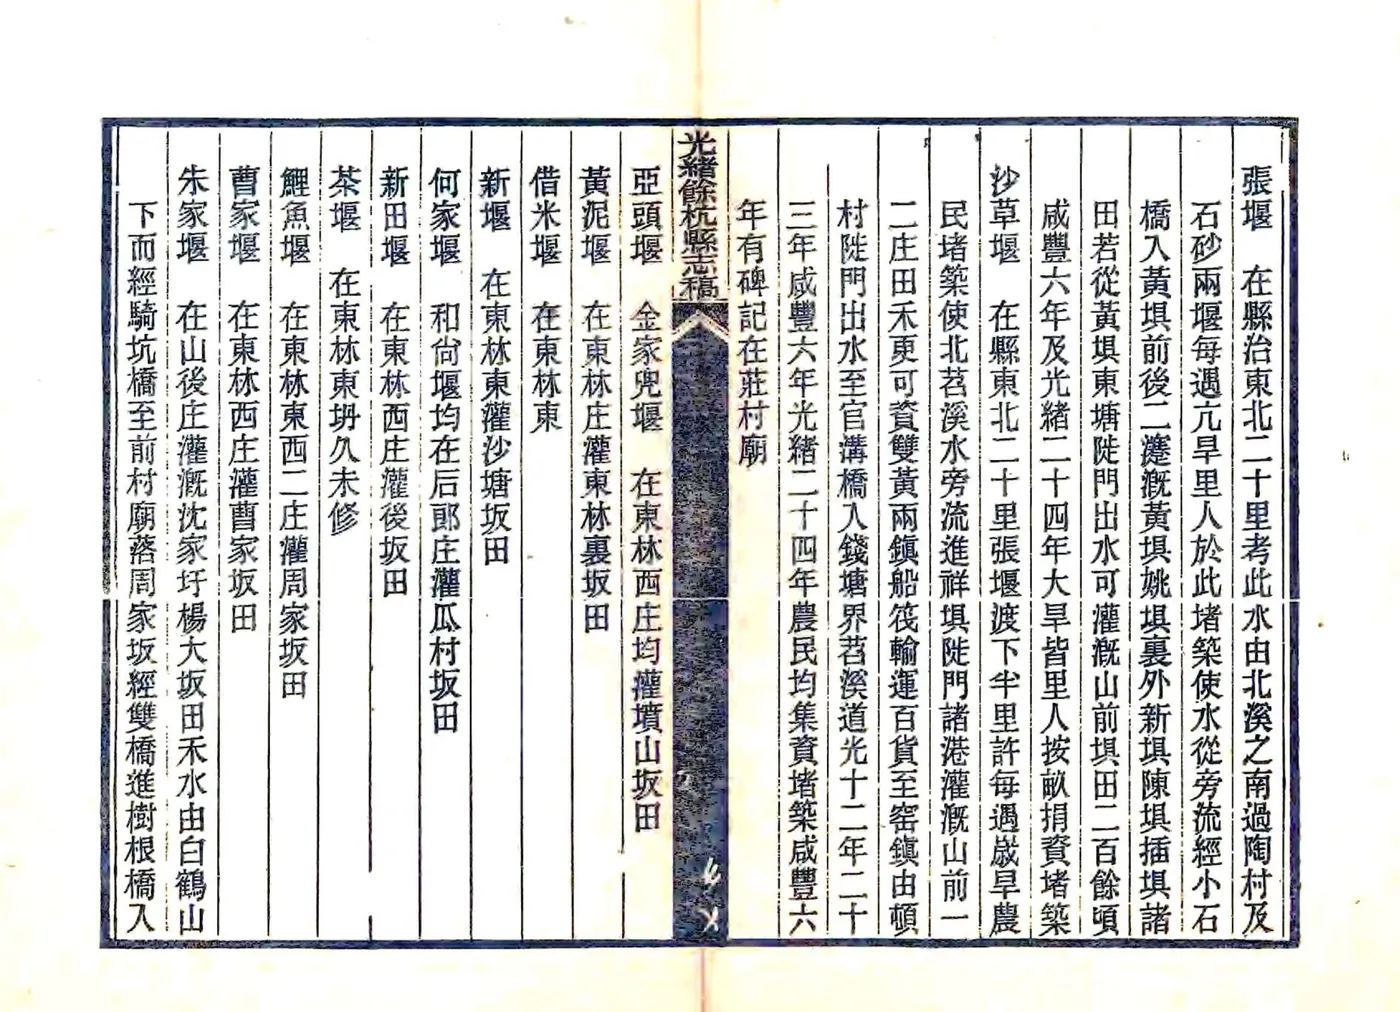 張堰　在縣治東北二十里考此水由北溪之南過陶村及
石砂兩堰每遇亢旱里人於此堵築使水從旁流經小石
橋入黃埧前後二㵽溉黃埧姚埧裏外新埧陳埧插埧諸
田若從黃埧東塘陡門出水可灌溉山前埧田二百餘頃
咸豐六年及光緒二十四年大旱皆里人按畝捐資堵築
沙草堰　在縣東北二十里張堰渡下半里許每遇嵗旱農
民堵築使北苕溪水旁流進祥埧陡門諸港灌溉山前一
二庄田禾更可資雙黃兩鎮船筏輸運百貨至窑鎮由頓
村陡門出水至官溝橋入錢塘界苕溪道光十二年二十
三年咸豐六年光緒二十四年農民均集資堵築咸豐六
年有碑記在莊村廟
光緒餘杭縣志稿
亞頭堰　金家兜堰　在東林西庄均灌墳山坂田
黃泥堰　在東林庄灌東林裏坂田
借米堰　在東林東
新堰　在東林東灌沙塘坂田
何家堰　和尙堰均在后郎庄灌瓜村坂田
新田堰　在東林西庄灌後坂田
茶堰　在東林東坍久未修
鯉魚堰　在東林東西二庄灌周家坂田
曹家堰　在東林西庄灌曹家坂田
朱家堰　在山後庄灌溉沈家圩楊大坂田禾水由白鶴山
下而經騎坑橋至前村廟落周家坂經雙橋進樹根橋入